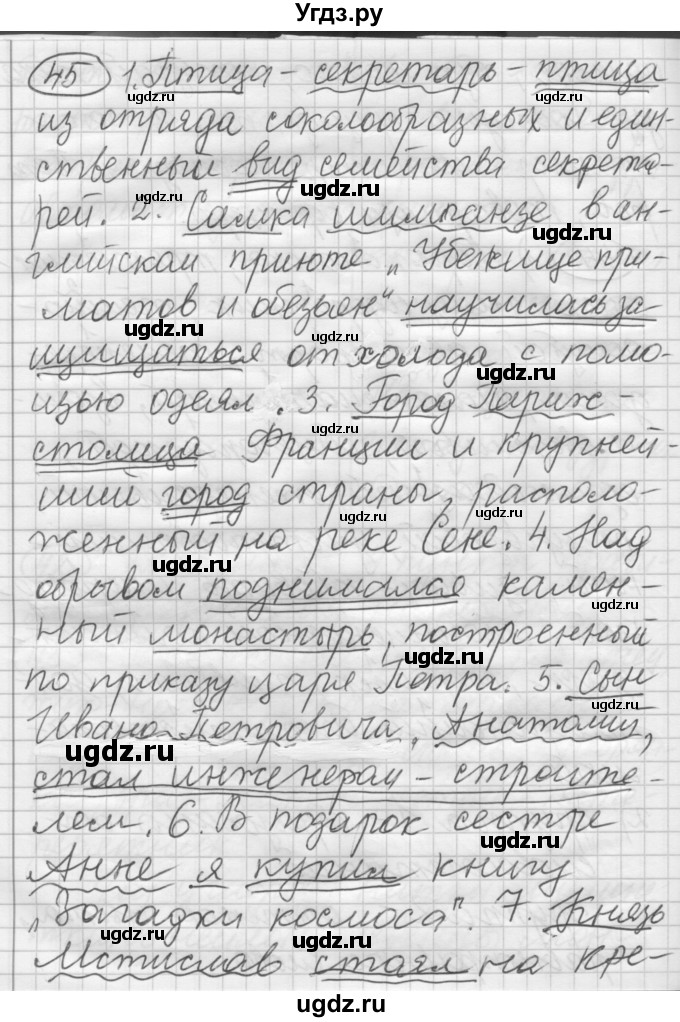 Угдз.ру
45 1. Птица - секретарь - птица
из отряда соколообразных и един-
ственный вид семейства секрета-
рей. 2. Самка шимпанзе в ан-
глийском приюте „Убежище при-
матов и обезьян“ научилась за-
щищаться от холода с помо-
щью одеял. 3. Город Париж -
столица Франции и крупней-
ший город страны, располо-
женный на реке Сене. 4. Над
обрывом поднимался камен-
ный монастырь, построенный
по приказу царя Петра. 5. Сын
Ивана Петровича, Анатолий,
стал инженером - строите-
лем. 6. В подарок сестре
Анне я купил книгу
„Загадки космоса“. 7. Князь
Мстислав стоял на кре-
ugdz.ru